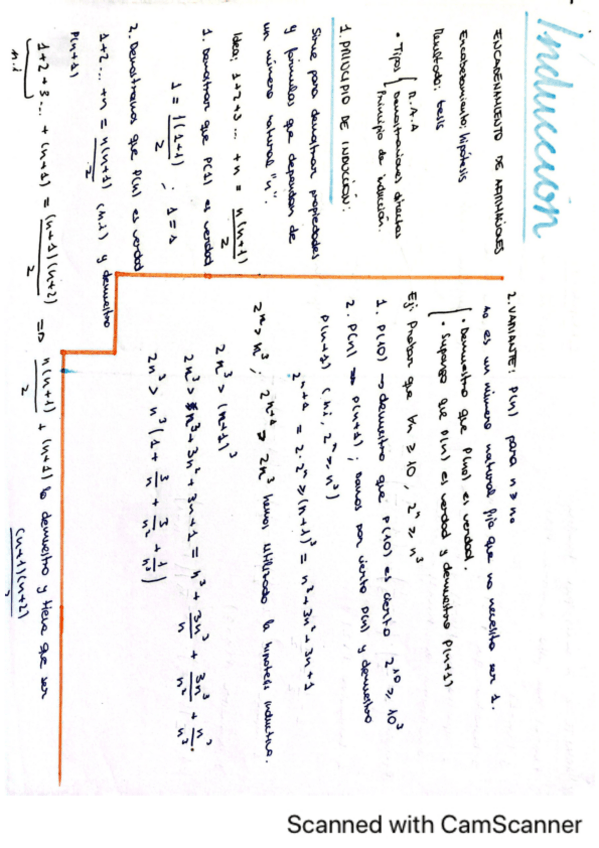 Inducción
ENCADENAMIENTO DE AFIRMACIONES
Encabezamiento: hipótesis
Resultado: tesis
• Tipos { R.A.A
Demostraciones directas
Principio de inducción.
1. PRINCIPIO DE INDUCCIÓN:
Sirve para demostrar propiedades
y fórmulas que dependan de
un número natural "n".
Idea: 1+2+3 ... + n = n(n+1)/2
1. Demostrar que P(1) es verdad
1 = 1(1+1)/2 ; 1 = 1
2. Demostramos que P(n) es verdad
1+2... +n = n(n+1)/2 (h.i) y demuestro
P(n+1)
1+2+3... + (n+1) = (n+1)(n+2)/2 => n(n+1)/2 + (n+1) lo demuestro y tiene que ser (n+1)(n+2)
h.i
2. VARIANTE: P(n) para n ≥ n₀
n₀ es un número natural fijo que no necesita ser 1.
• Demuestro que P(n₀) es verdad.
• Supongo que P(n) es verdad y demuestro P(n+1)
Ej: Probar que ∀n ≥ 10, 2ⁿ ≥ n³
1. P(10) → demuestro que P(10) es cierto 2¹⁰ ≥ 10³
2. P(n) => P(n+1) ; damos por cierto P(n) y demuestro
P(n+1) (h.i, 2ⁿ ≥ n³)
2ⁿ⁺¹ = 2·2ⁿ ≥ (n+1)³ = n³ + 3n² + 3n + 1
2ⁿ ≥ n³ ; 2ⁿ⁺¹ ≥ 2n³ hemos utilizado la hipótesis inductiva.
2n³ > (n+1)³
2n³ > n³ + 3n² + 3n + 1 = n³ + 3n³/n + 3n³/n² + n³/n³
2n³ > n³ (1 + 3/n + 3/n² + 1/n³)
Scanned with CamScanner